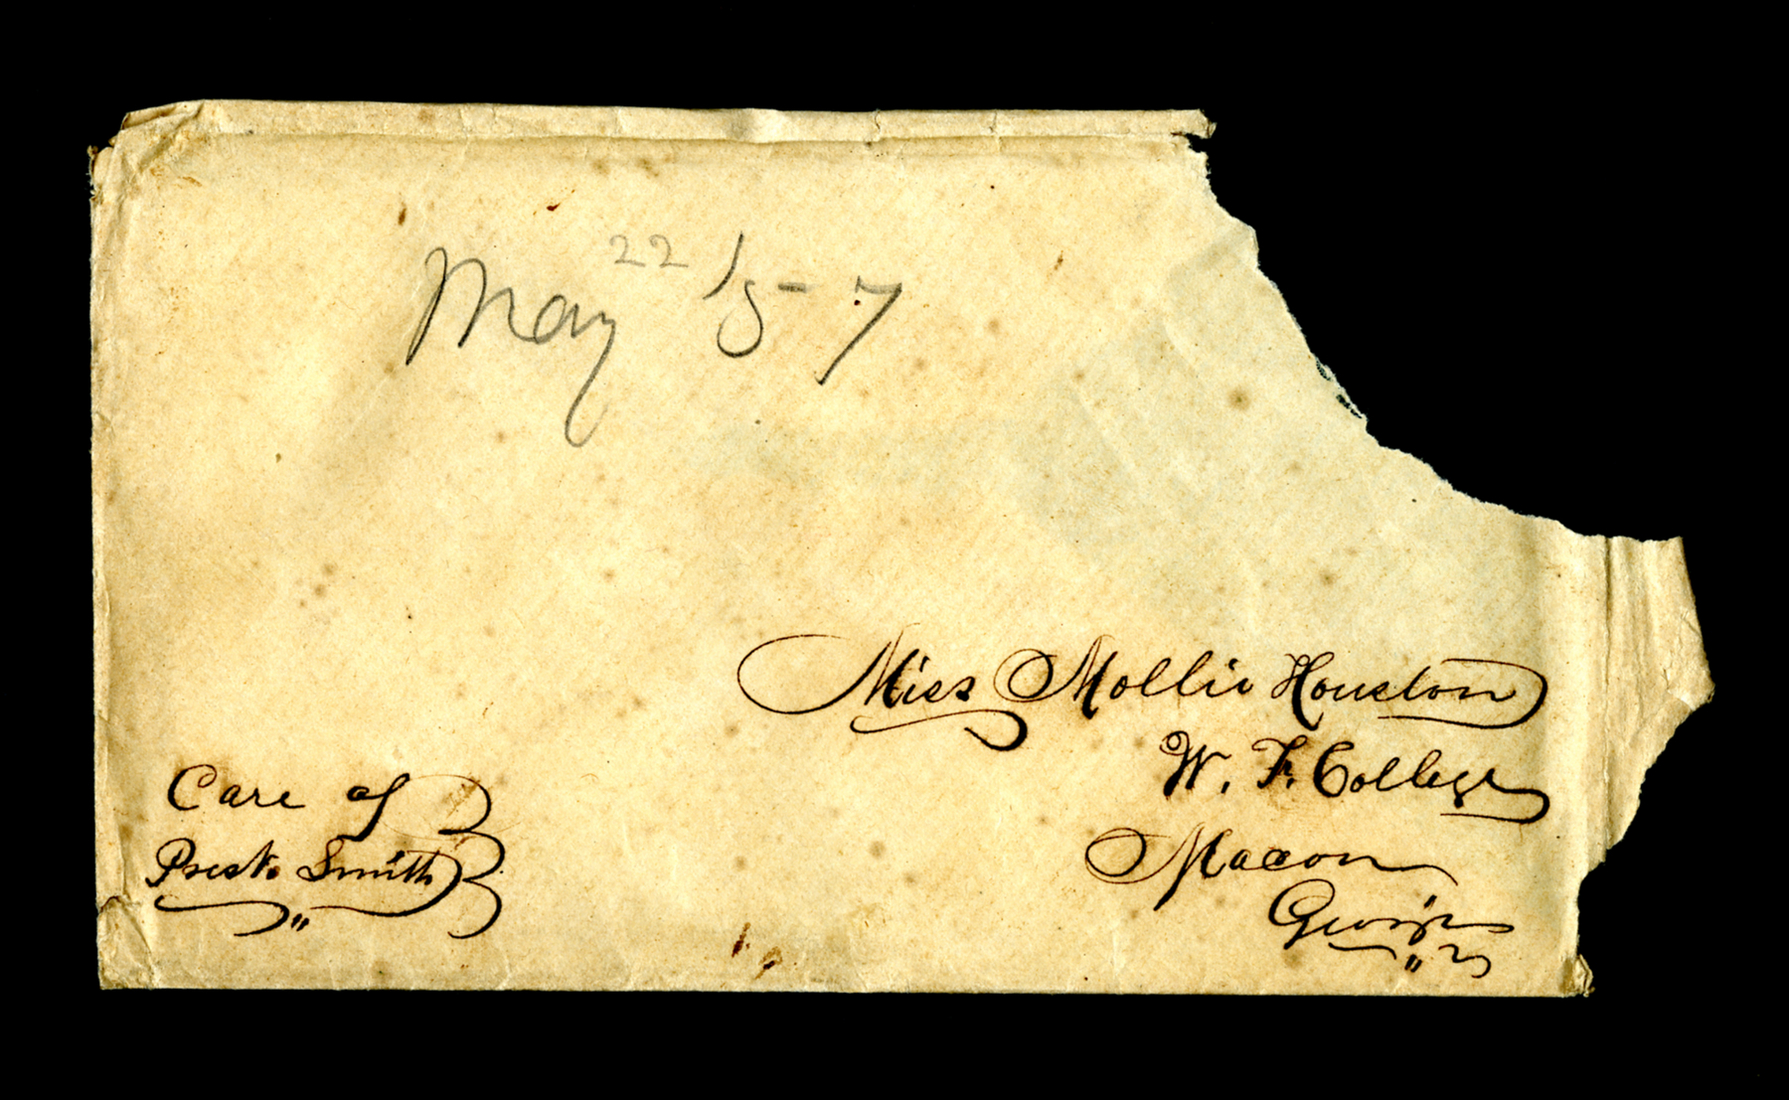 May 22 /57
Miss Mollie Houston
W. F. College
Macon
Georgia
Care of
Prest. Smith